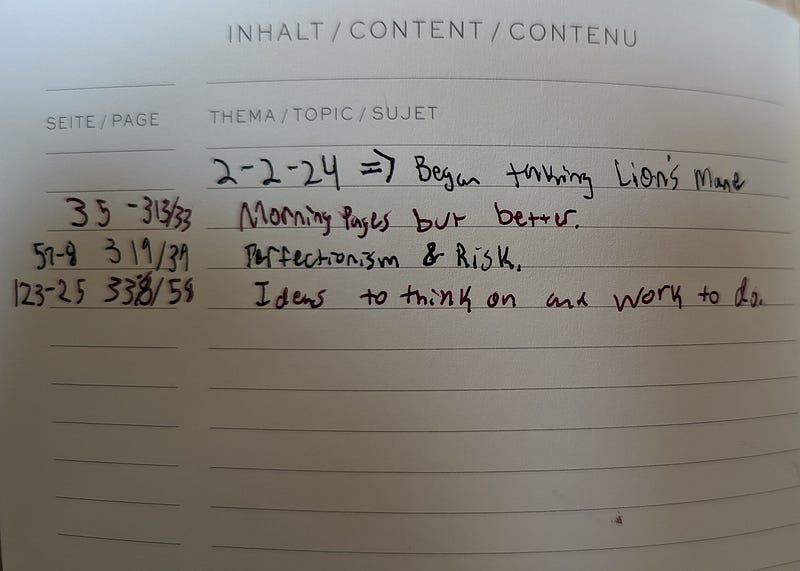 INHALT / CONTENT / CONTENU
SEITE / PAGE THEMA / TOPIC / SUJET
2-2-24 => Began taking Lion's Mane
35 -313/33 Morning Pages but better.
57-8 319/39 Perfectionism & Risk.
123-25 338/58 Ideas to think on and work to do.